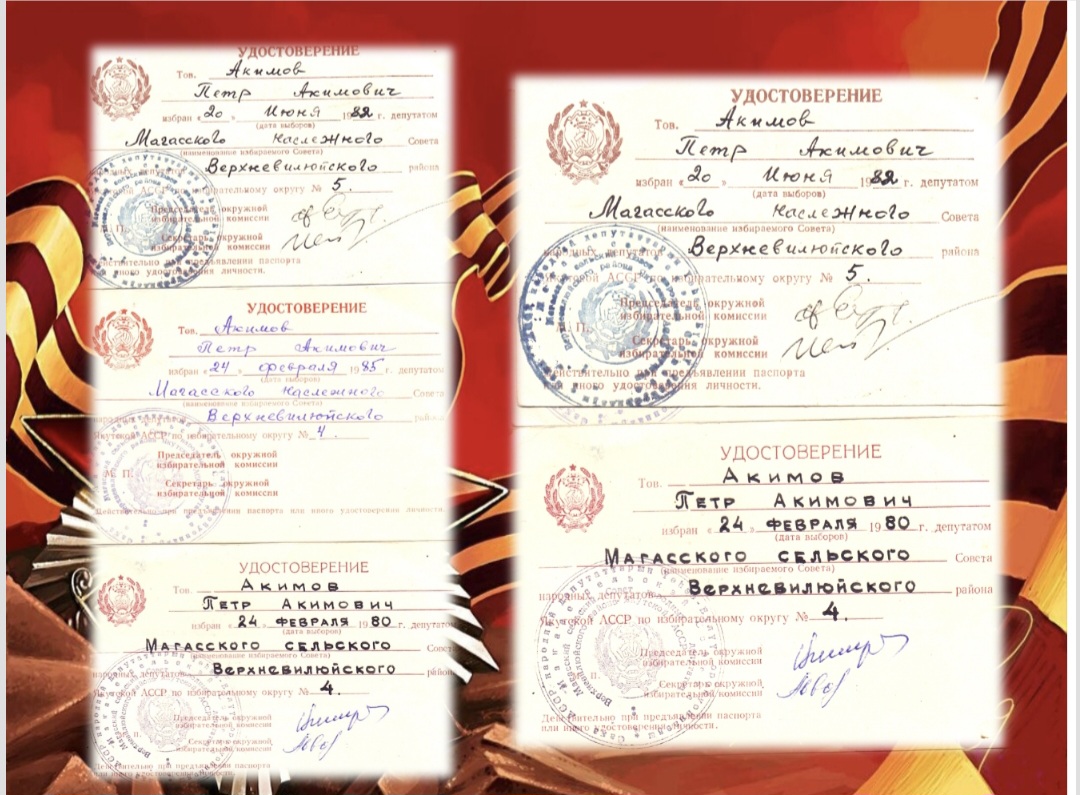 УДОСТОВЕРЕНИЕ
Тов. Акимов
Петр Акимович
избран «20» Июня 1982 г. депутатом
(дата выборов)
Магасского наслежного Совета
(наименование избираемого Совета)
народных депутатов Верхневилюйского района
Якутской АССР по избирательному округу № 5.
Председатель окружной
избирательной комиссии
М. П.
Секретарь окружной
избирательной комиссии
Действительно при предъявлении паспорта
или иного удостоверения личности.
УДОСТОВЕРЕНИЕ
Тов. Акимов
Петр Акимович
избран «24» февраля 1985 г. депутатом
(дата выборов)
Магасского наслежного Совета
(наименование избираемого Совета)
народных депутатов Верхневилюйского района
Якутской АССР по избирательному округу № 4.
Председатель окружной
избирательной комиссии
М. П.
Секретарь окружной
избирательной комиссии
Действительно при предъявлении паспорта или иного удостоверения личности.
УДОСТОВЕРЕНИЕ
Тов. Акимов
Петр Акимович
избран «24» февраля 1980 г. депутатом
(дата выборов)
Магасского сельского Совета
(наименование избираемого Совета)
народных депутатов Верхневилюйского района
Якутской АССР по избирательному округу № 4.
Председатель окружной
избирательной комиссии
Секретарь окружной
избирательной комиссии
Действительно при предъявлении паспорта
или иного удостоверения личности.
УДОСТОВЕРЕНИЕ
Тов. Акимов
Петр Акимович
избран «20» Июня 1982 г. депутатом
(дата выборов)
Магасского наслежного Совета
(наименование избираемого Совета)
народных депутатов Верхневилюйского района
Якутской АССР по избирательному округу № 5.
Председатель окружной
избирательной комиссии
М. П.
Секретарь окружной
избирательной комиссии
Действительно при предъявлении паспорта
или иного удостоверения личности.
УДОСТОВЕРЕНИЕ
Тов. Акимов
Петр Акимович
избран «24» февраля 1980 г. депутатом
(дата выборов)
Магасского сельского Совета
(наименование избираемого Совета)
народных депутатов Верхневилюйского района
Якутской АССР по избирательному округу № 4.
Председатель окружной
избирательной комиссии
Секретарь окружной
избирательной комиссии
Действительно при предъявлении паспорта
или иного удостоверения личности.